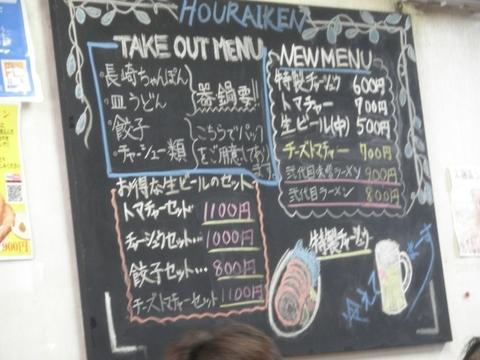 HOURAIKEN
TAKE OUT MENU
・長崎ちゃんぽん
・皿うどん
・餃子
・チャーシュー類
器・鍋要!!
こちらでパック
をご用意してあり
ます
NEW MENU
特製チャーシュウ 600円
トマチャー 700円
生ビール(中) 500円
チーズトマチャー 700円
弐代目味噌ラーメン 900円
弐代目ラーメン 800円
お得な生ビールのセット
トマチャーセット 1100円
チャーシュウセット… 1000円
餃子セット… 800円
チーズトマチャーセット 1100円
特製チャーシュウ
冷えてまーす
900円